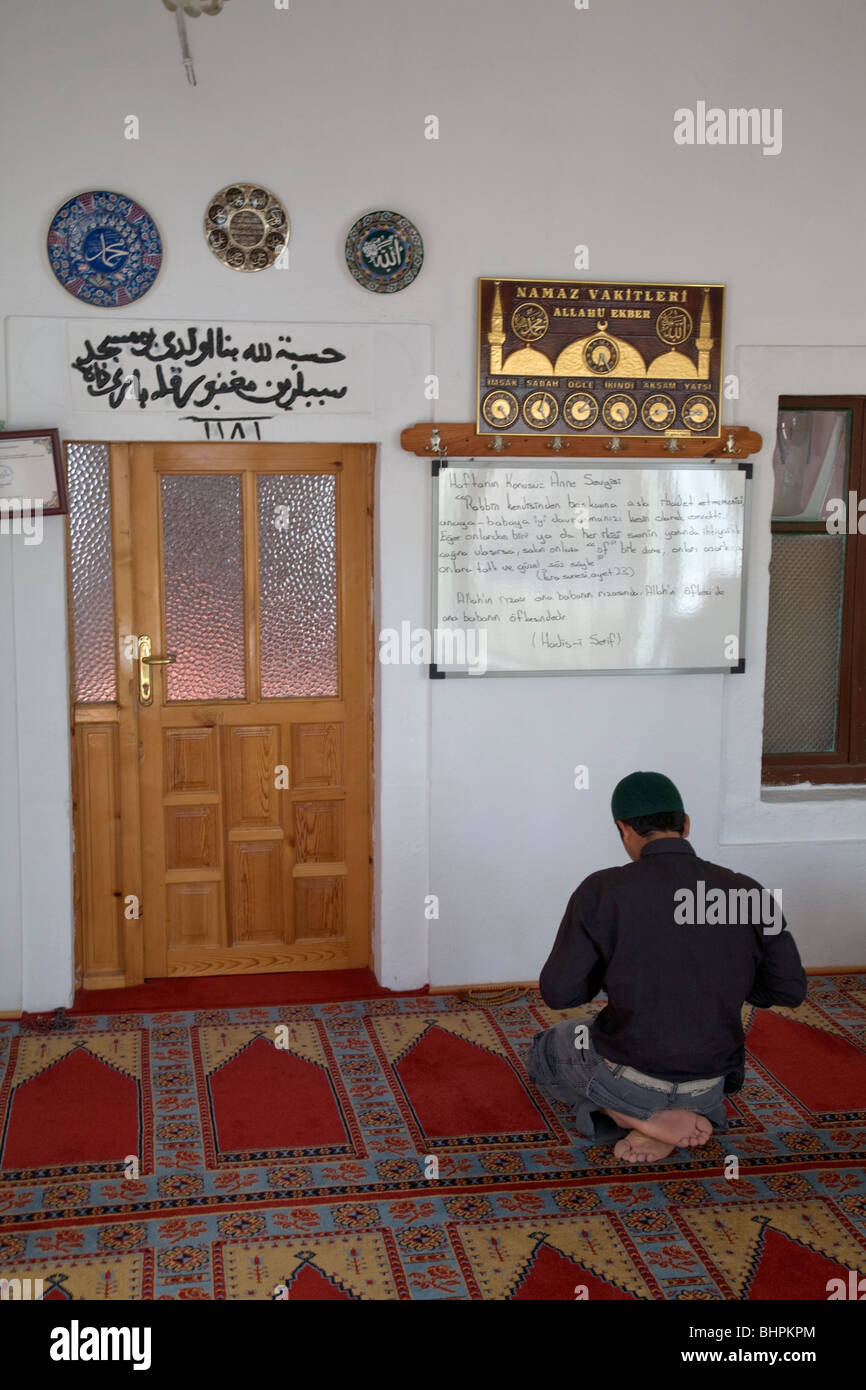 محمد
الله
حسبة لله بنا اولدى بو مسجد
سبيلرين مغفور قله بارى
١١٨١
NAMAZ VAKİTLERİ
ALLAHÜ EKBER
محمد
الله
İMSAK SABAH ÖĞLE İKİNDİ AKŞAM YATSI
Haftanın Konusu: Anne Sevgisi
"Rabbin kendisinden başkasına asla ibadet etmemenizi,
anaya-babaya iyi davranmanızı kesin olarak emretti.
Eğer onlardan biri ya da her ikisi senin yanında ihtiyarlık
çağına ulaşırsa, sakın onlara "öf" bile deme, onları azarlama
onlara tatlı ve güzel söz söyle"
(İsra suresi, ayet 23)
Allah'ın rızası ana babanın rızasında. Allah'ın öfkesi de
ana babanın öfkesindedir.
(Hadis-i Şerif)
alamy
alamy
Image ID: BHPKPM
www.alamy.com